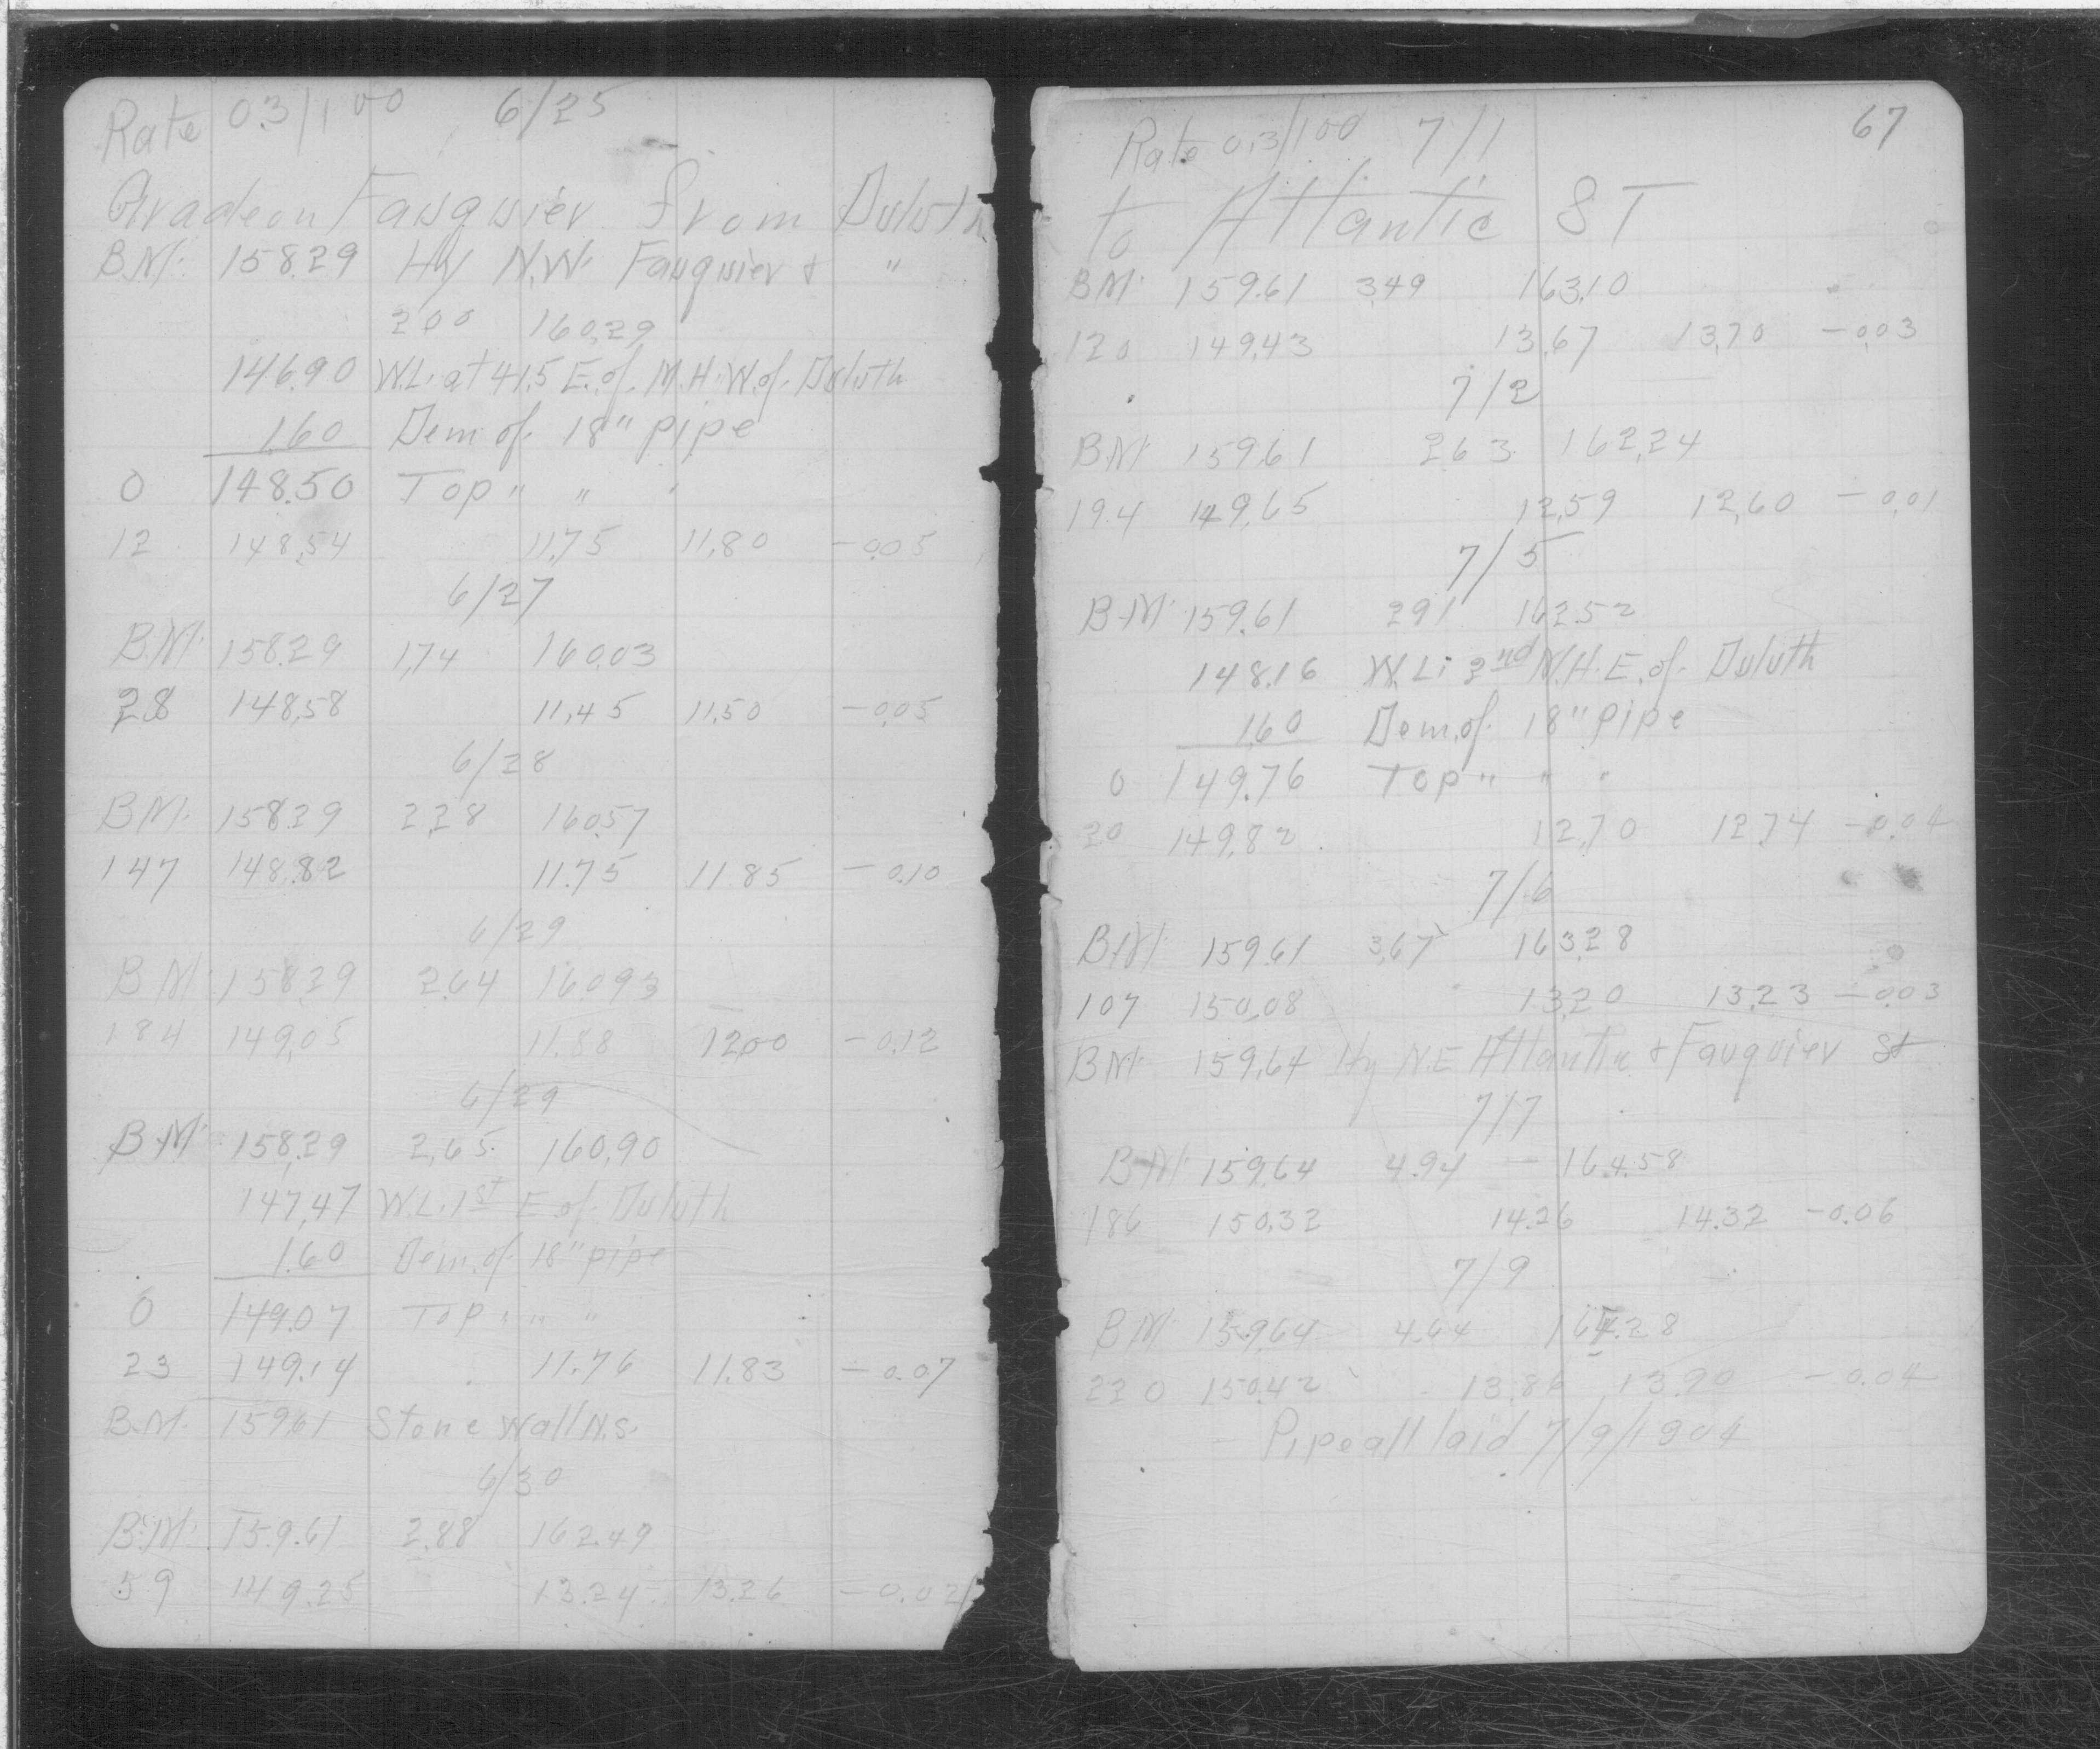 Rate 0.3/100 6/25
Grade on Fauquier from Duluth
B.M. 158.29 Hy N.W. Fauquier & "
2.00 160.29
146.90 W.L. at 41.5 E. of M.H. W. of Duluth
1.60 Dem. of 18" pipe
0 148.50 Top " " "
12 148.54 11.75 11.80 -0.05
6/27
B.M. 158.29 1.74 160.03
28 148.58 11.45 11.50 -0.05
6/28
B.M. 158.29 2.28 160.57
147 148.82 11.75 11.85 -0.10
6/29
B.M. 158.29 2.64 160.93
184 149.05 11.88 12.00 -0.12
6/29
B.M. 158.29 2.65 160.90
147.47 W.L. 1st E. of Duluth
1.60 Dem. of 18" pipe
0 149.07 Top " " "
23 149.14 11.76 11.83 -0.07
B.M. 159.61 Stone Wall N.S.
6/30
B.M. 159.61 2.88 162.49
59 149.25 13.24 13.26 -0.02
67
Rate 0.3/100 7/1
to Atlantic ST
B.M. 159.61 3.49 163.10
120 149.43 13.67 13.70 -0.03
7/2
B.M. 159.61 2.63 162.24
194 149.65 12.59 12.60 -0.01
7/5
B.M. 159.61 2.91 162.52
148.16 W.L. 2nd M.H. E. of Duluth
1.60 Dem. of 18" pipe
0 149.76 Top " " "
20 149.82 12.70 12.74 -0.04
7/6
B.M. 159.61 3.67 163.28
107 150.08 13.20 13.23 -0.03
B.M. 159.64 Hy N.E Atlantic & Fauquier St
7/7
B.M. 159.64 4.94 - 164.58
186 150.32 14.26 14.32 -0.06
7/9
B.M. 159.64 4.64 164.28
220 150.42 13.86 13.90 -0.04
- Pipe all laid 7/9/1904